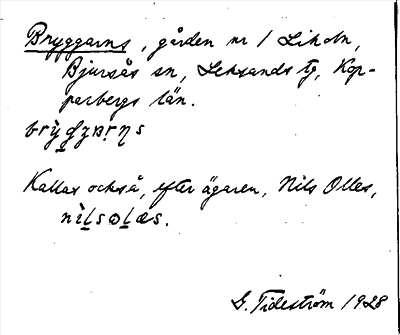 Bryggarns, gården nr 1 Liholn,
Bjursås sn, Leksands tg, Kop-
parbergs län.
Kallas också, efter ägaren, Nils Olles,
G. Tideström 1928